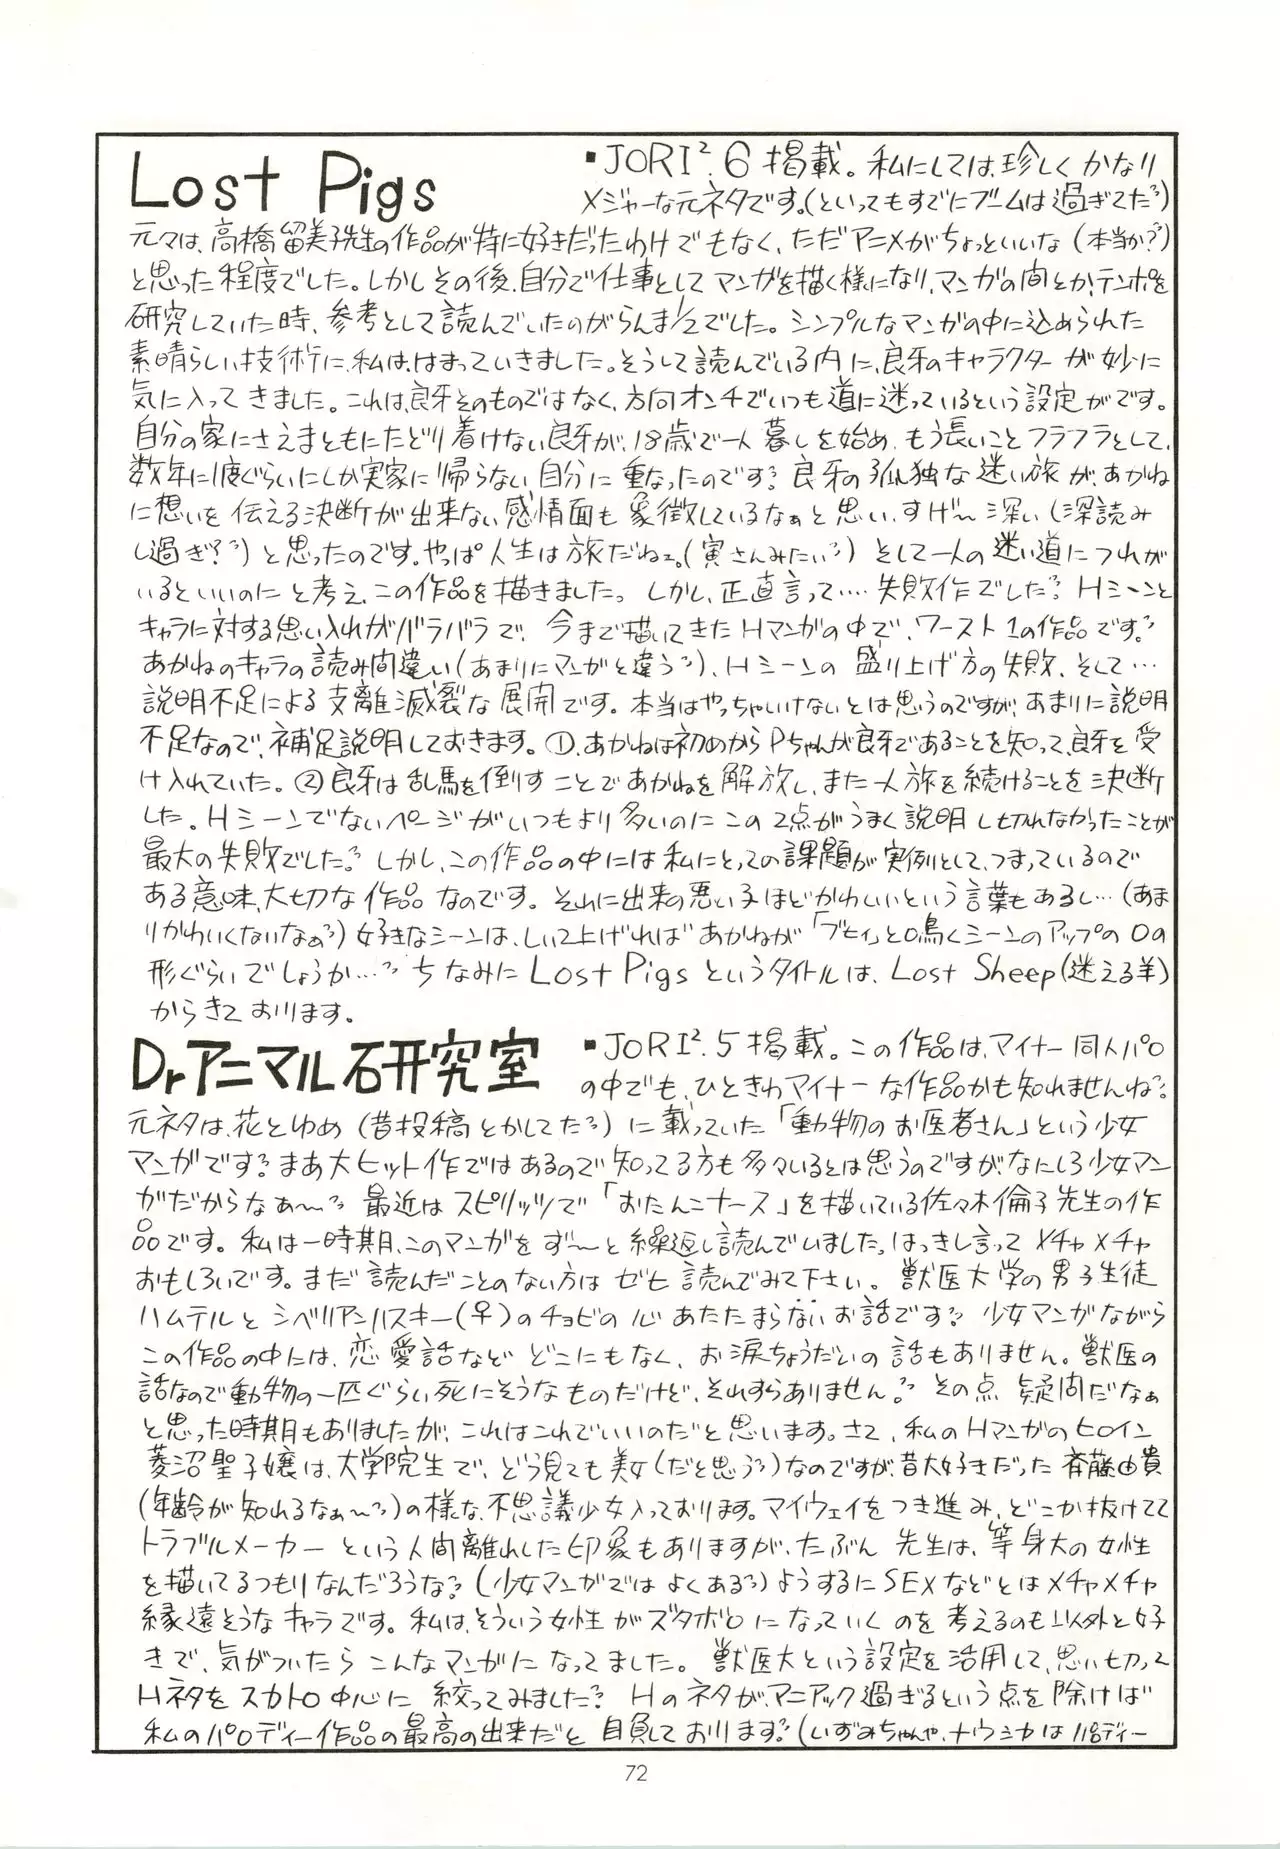 Lost Pigs
▪JORI².6掲載。私にしては、珍しくかなり
メジャーな元ネタです。(といってもすでにブームは過ぎてた〃)
元々は、高橋留美子先生の作品が特に好きだったわけでもなく、ただアニメがちょっといいな(本当か?〃)
と思った程度でした。しかしその後、自分で仕事としてマンガを描く様になり、マンガの間とか、テンポを
研究していた時、参考として読んでいたのがらんま1/2でした。シンプルなマンガの中に込められた
素晴らしい技術に、私は、はまっていきました。そうして読んでいる内に、良牙のキャラクターが妙に
気に入ってきました。これは、良牙そのものではなく、方向オンチでいつも道に迷っているという設定がです。
自分の家にさえまともにたどり着けない良牙が、18歳で一人暮しを始め、もう長いことフラフラとして、
数年に1度ぐらいにしか実家に帰らない自分に重なったのです〃。良牙の孤独な迷い旅が、あかね
に想いを伝える決断が出来ない感情面も象徴しているなぁと思い、すげ〜深い(深読み
し過ぎ?〃)と思ったのです。やっぱ人生は旅だねェ。(寅さんみたい〃)そして一人の迷い道につれが
いるといいのにと考え、この作品を描きました。しかし、正直言って‥‥失敗作でした〃。Hシーンと
キャラに対する思い入れがバラバラで、今まで描いてきたHマンガの中で、ワースト1の作品です。〃
あかねのキャラの読み間違い(あまりにマンガと違う〃)、Hシーンの盛り上げ方の失敗、そして‥‥
説明不足による支離滅裂な展開です。本当はやっちゃいけないとは思うのですが、あまりに説明
不足なので、補足説明しておきます。①、あかねは初めからPちゃんが良牙であることを知って、良牙を受
け入れていた。②良牙は乱馬を倒すことであかねを解放し、また一人旅を続けることを決断
した。Hシーンでないページがいつもより多いのにこの2点がうまく説明し切れなかったことが
最大の失敗でした〃。しかし、この作品の中には私にとっての課題が実例として、つまっているので
ある意味、大切な作品なのです。それに出来の悪い子ほどかわいいという言葉もあるし‥‥(あま
りかわいくないなぁ〃)好きなシーンは、しいて上げればあかねが「ブヒィ」と鳴くシーンのアップの口の
形ぐらいでしょうか‥‥〃ちなみにLost Pigsというタイトルは、Lost Sheep(迷える羊)
からきております。
Drアニマル石研究室
▪JORI².5掲載。この作品は、マイナー同人パロ
の中でも、ひときわマイナーな作品かも知れませんね〃。
元ネタは、花とゆめ(昔投稿とかしてた〃)に載っていた「動物のお医者さん」という少女
マンガです〃。まあ大ヒット作ではあるので知ってる方も多々いるとは思うのですが、なにしろ少女マン
ガだからなぁ〜〃最近はスピリッツで「おたんこナース」を描いている佐々木倫子先生の作
品です。私は一時期、このマンガをず〜と繰返し読んでいました。はっきし言ってメチャメチャ
おもしろいです。まだ読んだことのない方はゼヒ読んでみて下さい。獣医大学の男子生徒
ハムテルとシベリアンハスキー(♀)のチョビの心あたたまらないお話です〃。少女マンガながら
この作品の中には、恋愛話などどこにもなく、お涙ちょうだいの話もありません。獣医の
話なので動物の一匹ぐらい死にそうなものだけど、それすらありません。〃その点疑問だなぁ
と思った時期もありましたが、これはこれでいいのだと思います。さて、私のHマンガのヒロイン
菱沼聖子嬢は、大学院生で、どう見ても美女(だと思う〃)なのですが、昔大好きだった斉藤由貴
(年齢が知れるなぁ〜〃)の様な、不思議少女入っております。マイウェイをつき進み、どこか抜けてて
トラブルメーカーという人間離れした印象もありますが、たぶん先生は、等身大の女性
を描いてるつもりなんだろうな〃。(少女マンガではよくある〃)ようするにSEXなどとはメチャメチャ
縁遠そうなキャラです。私は、そういう女性がズタボロになっていくのを考えるのも以外と好
きで、気がついたらこんなマンガになってました。獣医大という設定を活用して、思い切って
Hネタをスカトロ中心に絞ってみました〃。Hのネタが、マニアック過ぎるという点を除けば
私のパロディー作品の最高の出来だと自負しております〃。(いずみちゃんや、ナウシカはパロディー
72